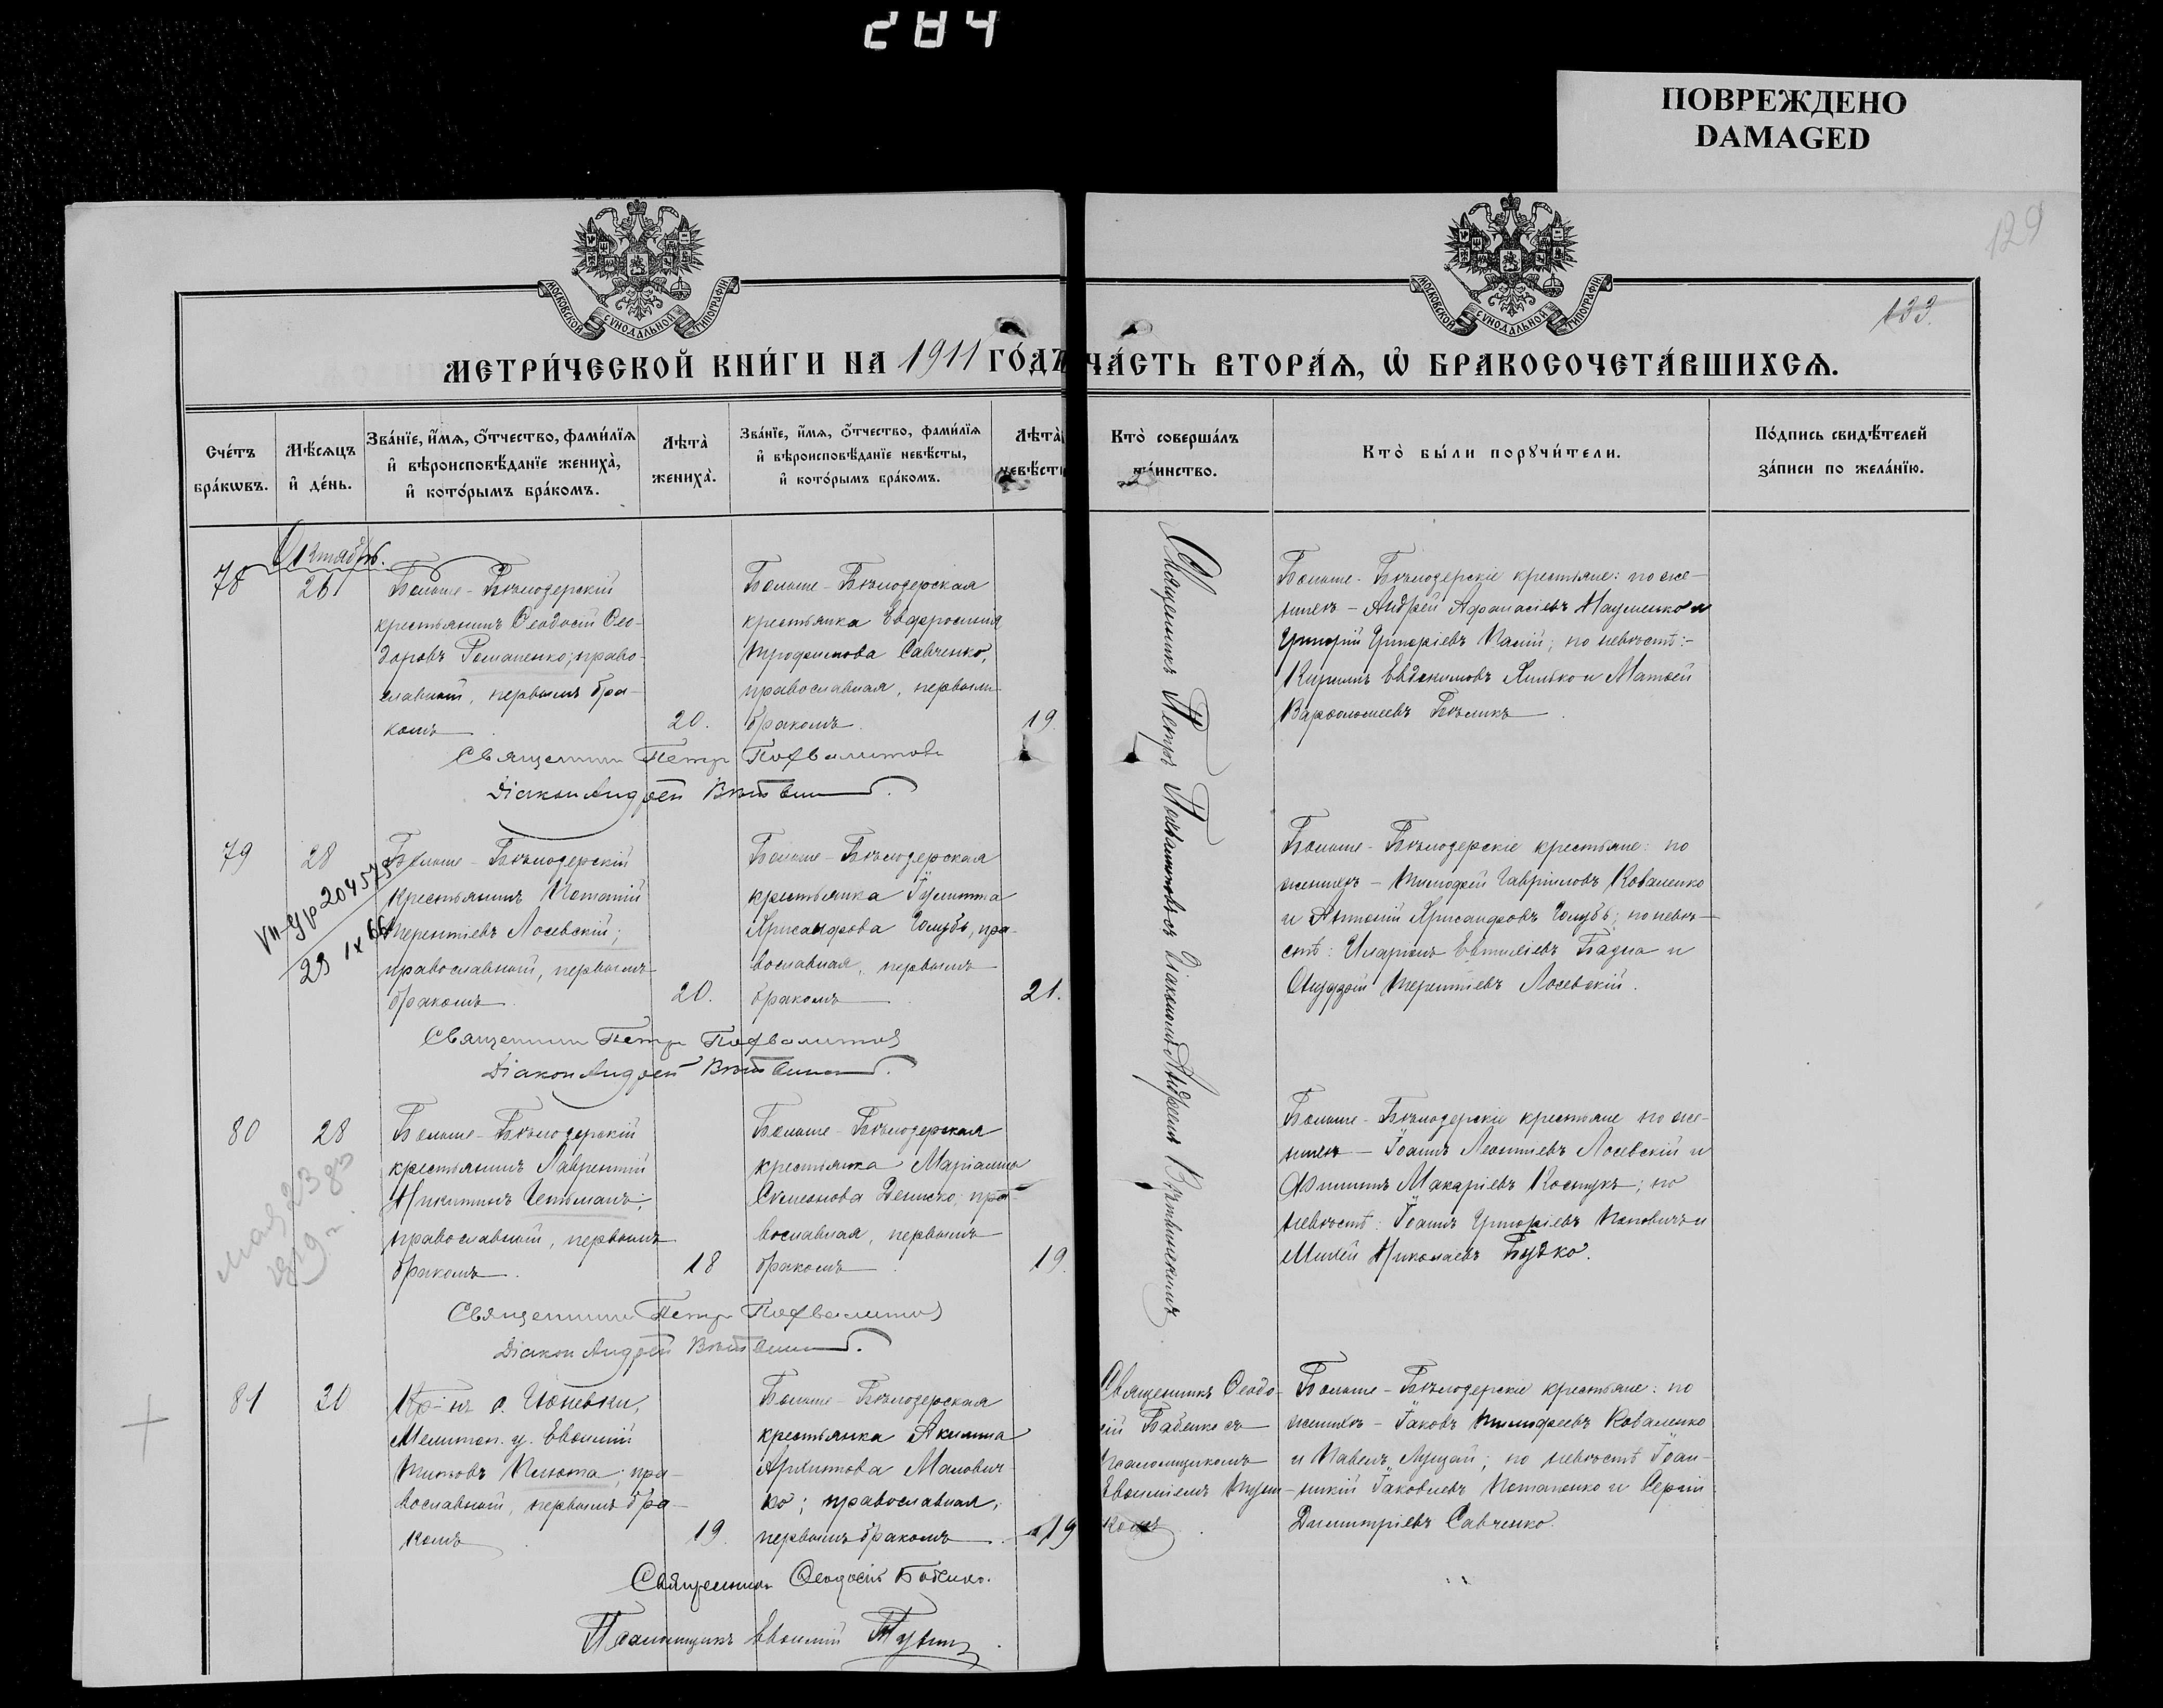 284
ПОВРЕЖДЕНО
DAMAGED
129
133.
МОСКОВСКОЙ СѴНОДАЛЬНОЙ ТИПОГРАФІИ
МОСКОВСКОЙ СѴНОДАЛЬНОЙ ТИПОГРАФІИ
МЕТРИ́ЧЕСКОЙ КНИ́ГИ НА 1911 ГО́ДЪ ЧА́СТЬ ВТОРА́Ѧ, Ѽ БРАКОСОЧЕТА́ВШИХСѦ.
Сче́тъ
бра́кѡвъ.
Мѣ́сѧцъ
и҆ де́нь.
Зва́нїе, и҆́мѧ, ѻ҆́тчество, фами́лїѧ
и҆ вѣроисповѣ́данїе жениха̀,
и҆ кото́рымъ бра́комъ.
Лѣта̀
жениха̀.
Зва́нїе, и҆́мѧ, ѻ҆́тчество, фами́лїѧ
и҆ вѣроисповѣ́данїе невѣ́сты,
и҆ кото́рымъ бра́комъ.
Лѣта̀
невѣ́сты
Кто̀ соверша́лъ
та́инство.
Кто̀ бы́ли порꙋчи́тели.
По́дпись свидѣ́телей
за́писи по жела́нїю.
Октябрь.
78
26
Больше-Бѣлозерскій
крестьянинъ Ѳеодосій Ѳео-
доровъ Романенко; право-
славный, первымъ бра-
комъ
20.
Больше-Бѣлозерская
крестьянка Евфросинія
Трофимова Савченко,
православная, первымъ
бракомъ
19.
Священникъ Петръ Похвалитовъ съ діакономъ Андреемъ
Больше-Бѣлозерскіе крестьяне: по же-
нихѣ - Андрей Аѳанасіевъ Науменко и
Григорій Григоріевъ Палій; по невѣстѣ:-
Кириллъ Евдокимовъ Хилько и Матѳей
Варѳоломеевъ Бѣликъ
Священникъ Петръ Похвалитовъ
Діаконъ Андрей
79
28
VII-УР 204575
29 IX 66
Больше-Бѣлозерскій
крестьянинъ Игнатій
Терентіевъ Лосевскій;
православный, первымъ
бракомъ
20.
Больше-Бѣлозерская
крестьянка Іулитта
Хрисанфова Голубъ, пра-
вославная, первымъ
бракомъ
21.
Больше-Бѣлозерскіе крестьяне: по
женихѣ - Тимофей Гавріиловъ Коваленко
и Антоній Хрисанфовъ Голубъ; по невѣ-
стѣ: Иларіонъ Евтихіевъ и
Терентіевъ Лосевскій.
Священникъ Петръ Похвалитовъ
Діаконъ Андрей
80
28
мая 23 дн
1919 г.
Больше-Бѣлозерскій
крестьянинъ Лаврентій
Никитинъ Гетьманъ;
православный, первымъ
бракомъ.
18
Больше-Бѣлозерская
крестьянка Маріанна
Симеонова Денеско; пра-
вославная, первымъ
бракомъ
19.
Больше-Бѣлозерскіе крестьяне по же-
нихѣ - Іоаннъ Леонтіевъ Лосевскій и
Филиппъ Макаріевъ Костукъ; по
невѣстѣ: Іоаннъ Григоріевъ Поповичъ и
Михей Николаевъ Будко.
Священникъ Петръ Похвалитовъ
Діаконъ Андрей
81
30
Кр-нъ с.
Мелитоп. у. Евѳимій
Титовъ Пихота; пра-
вославный, первымъ бра-
комъ
19.
Больше-Бѣлозерская
крестьянка Акилина
Архиппова Малович-
ко; православная,
первымъ бракомъ
19
Священникъ Ѳеодо-
сій Бабенко съ
псаломщикомъ
Евѳиміемъ
Больше-Бѣлозерскіе крестьяне: по
женихѣ - Іаковъ Тимофеевъ Коваленко
и Павелъ Лущай; по невѣстѣ Іоан-
никій Іаковлевъ Потапенко и Сергій
Димитріевъ Савченко.
Священникъ Ѳеодосій Бабенко.
Псаломщикъ Евѳимій